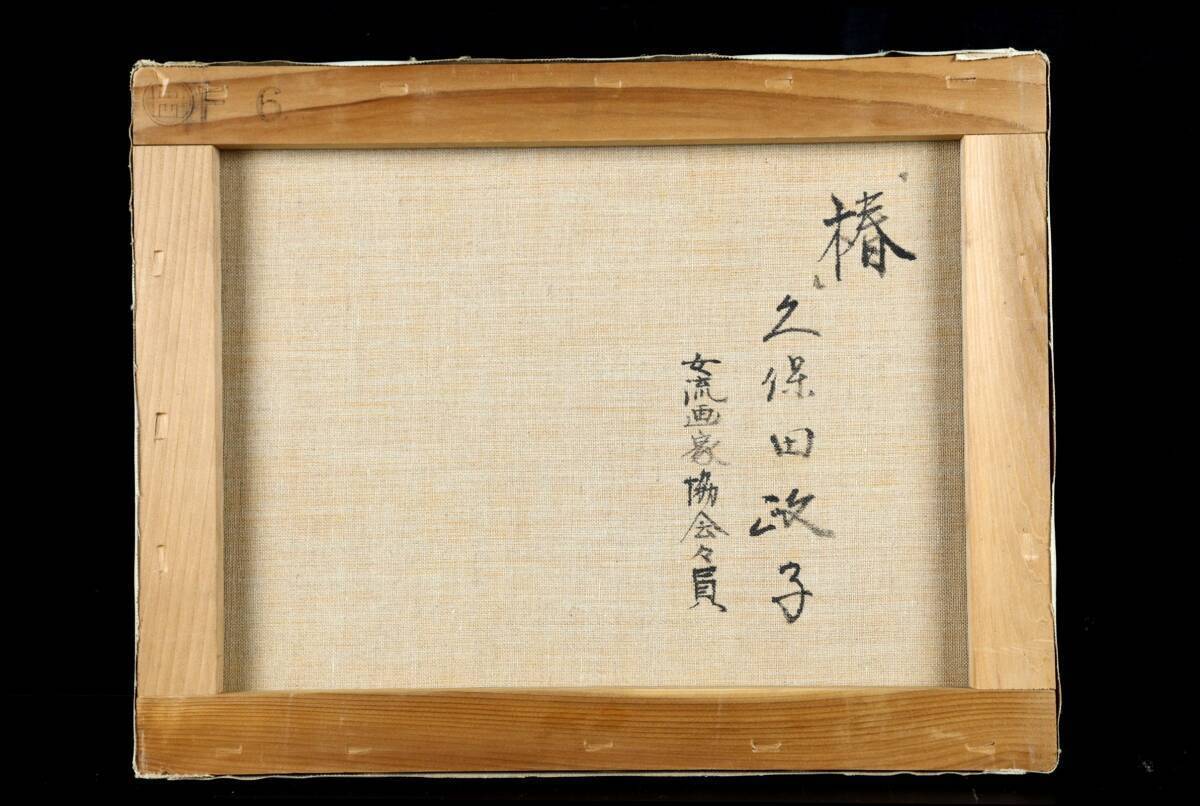 「椿」
久保田政子
女流画家協会々員
F 6